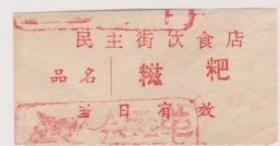 民主街饮食店
品名 糍粑
当日有效